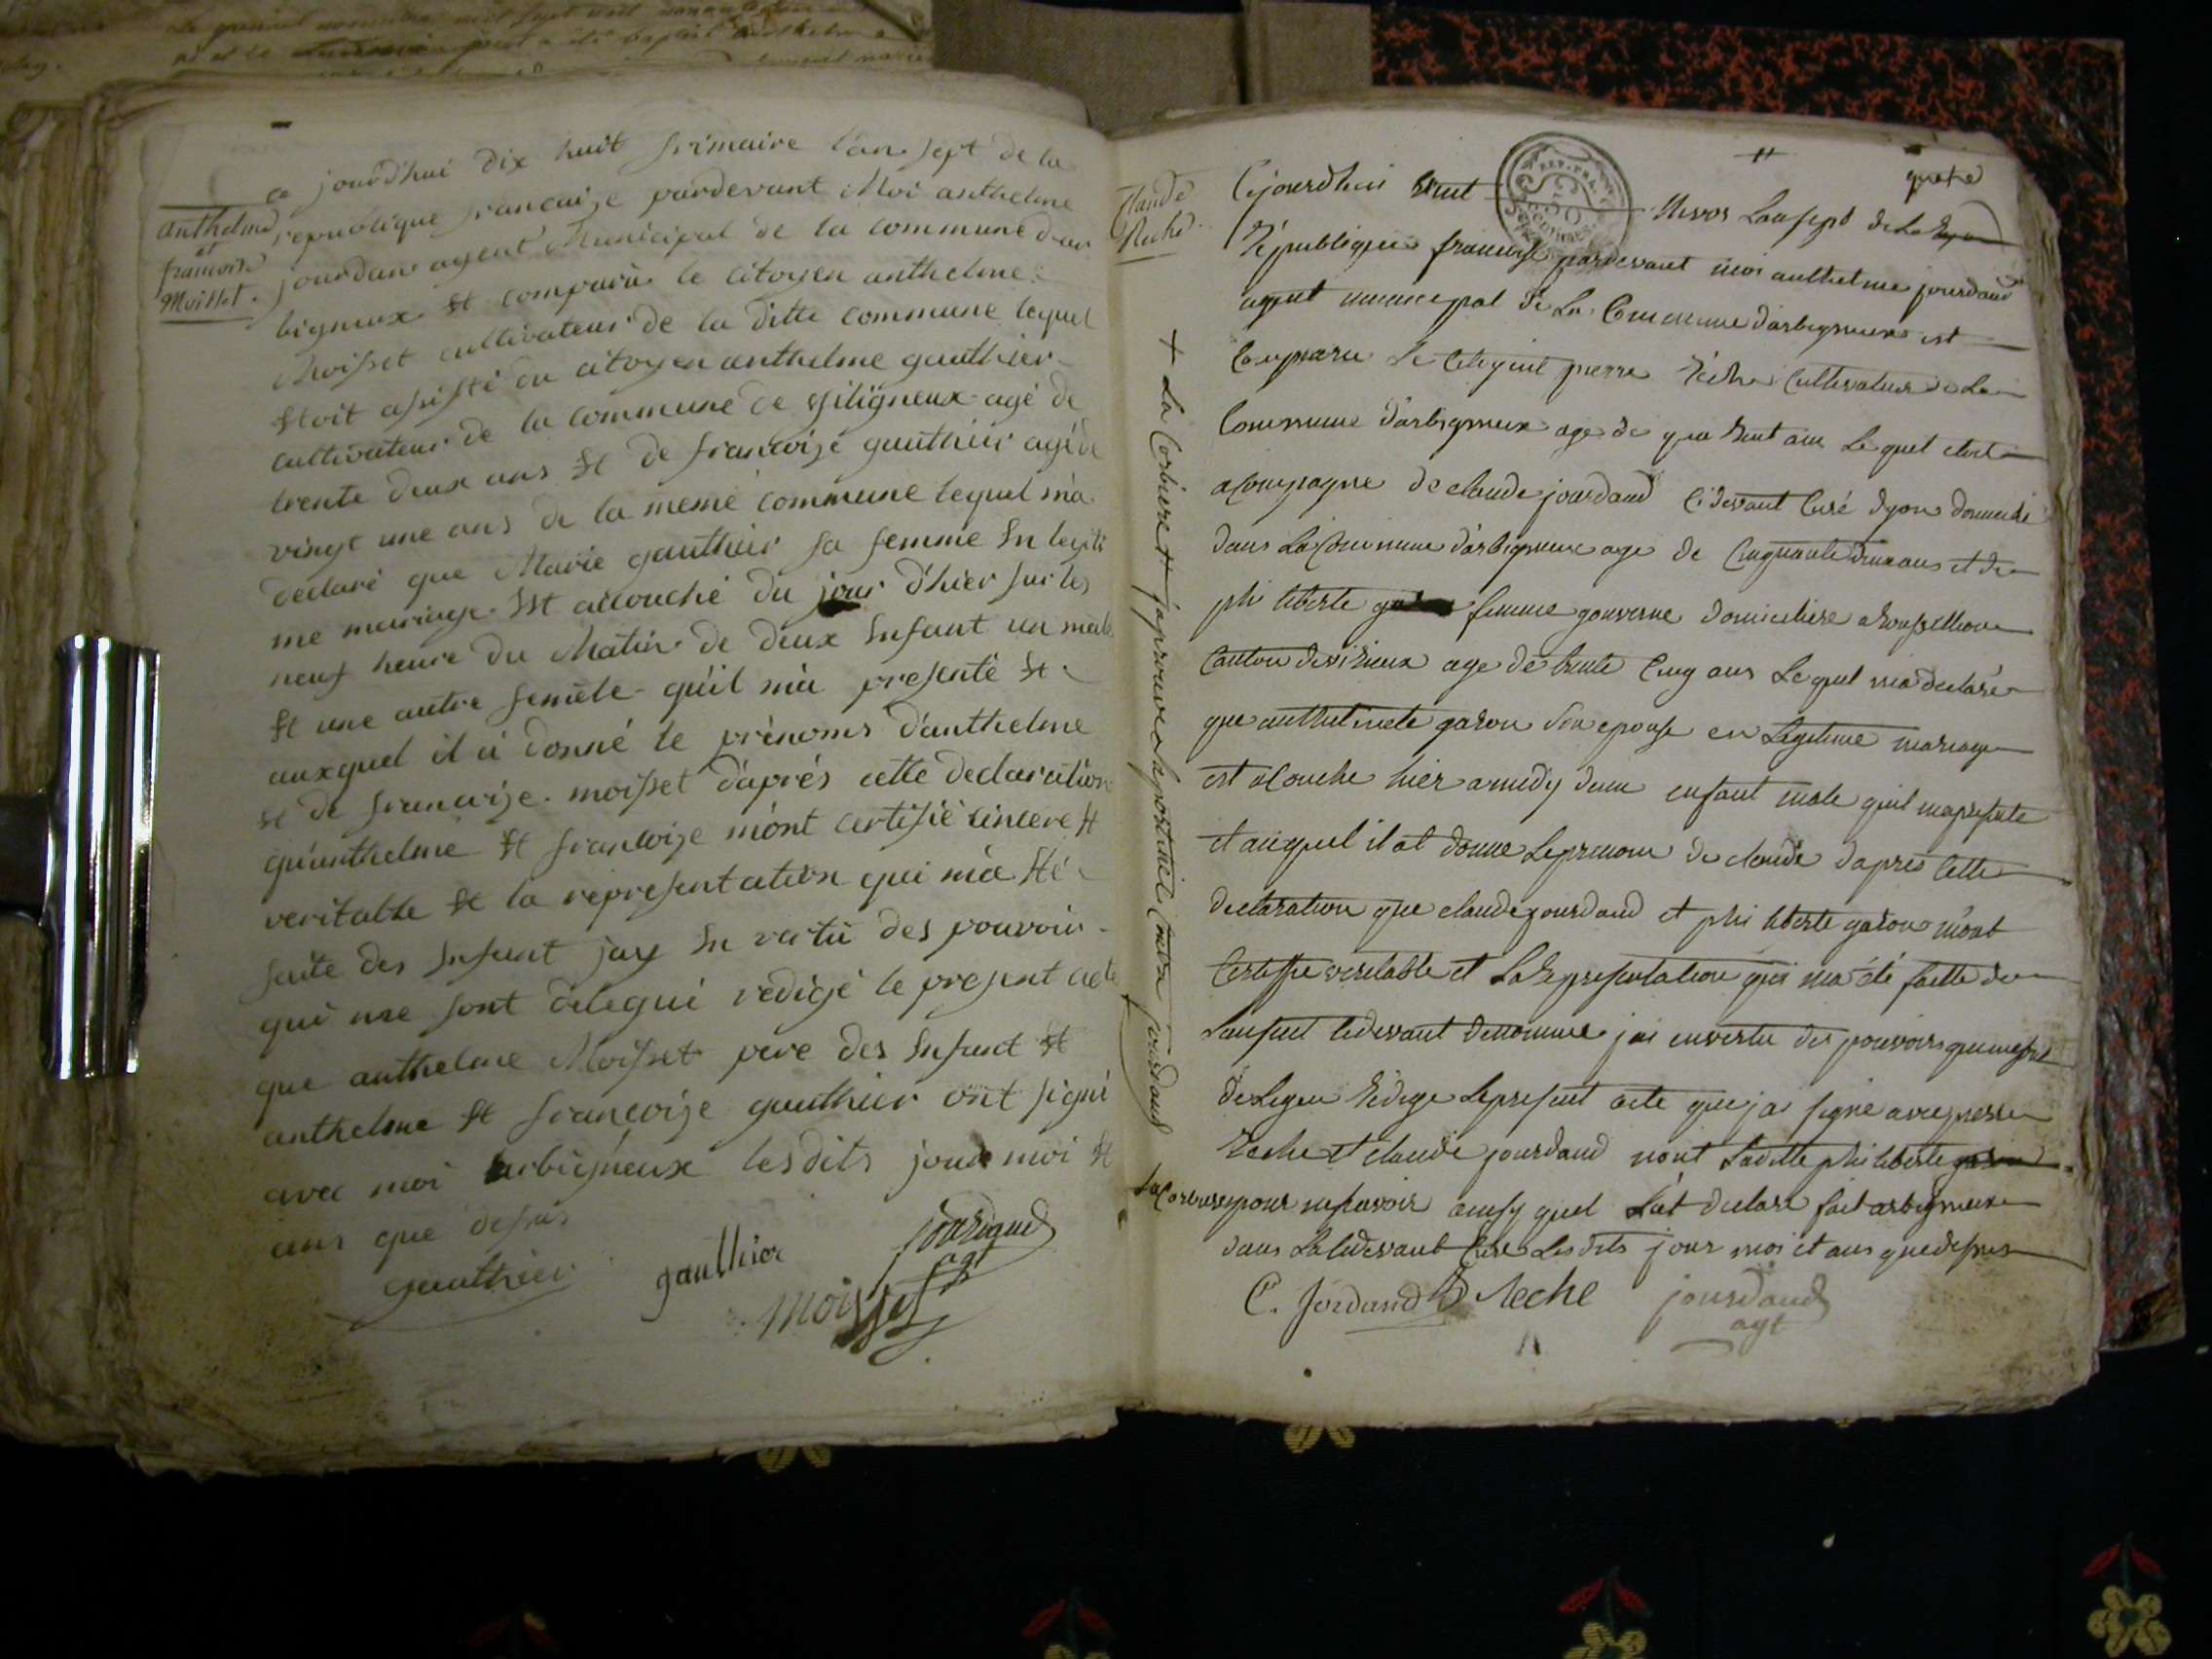 anthelme
et
francoise
Moisset.
ce jourd'hui dix huit frimaire l'an sept de la
republique francaise pardevant Moi anthelme
jourdan agent Municipal de la commune dar
bigneux Et comparu le citoyen anthelme
Moisset cultivateur de la ditte commune lequel
Etoit assisté du citoyen anthelme gauthier
cultivateur de la commune de agé de
trente deux ans Et de francoise gauthier agé de
vingt une ans de la meme commune lequel m'a
declaré que Marie gauthier sa femme En legiti
me mariage Est accouché du jour d'hier sur les
neuf heure du Matin de deux Enfant un male
Et une autre femele qu'il m'a presenté Et
auxquel il a donné le prénoms d'anthelme
Et de francoise moisset d'aprés cette declaration
qu'anthelme Et francoise m'ont certifié sincere Et
veritable Et la representation qui m'a Eté
faite des Enfant jay En vertu des pouvoir
qui me sont delegué redigé le present acte
que anthelme Moisset pere des Enfant Et
anthelme Et francoise gauthier ont signé
avec moi arbigneux lesdits jour moi Et
ans que dessus
gauthier gauthier jourdand
agt
Moisset
quatre
Claude
Reche
Cejourdhui huit Nivos Lansept de La
République francoise pardevant moi anthelme jourdand
agent municepal de La Commune darbigneux est
Comparu le Citoyent pierre Réche Cultivateur de La
Commune darbigneux age de ans Le quel etoit
acompagne de claude jourdand Cidevant Curé dyon domicilié
dans La Commune darbigneux age de Cinquante deux ans et de
phi liberte femme gouverne domiciliere a
Canton de age de trente Cinq ans Le quel ma declaré
que anthelmete garon son epouse en Legitime mariage
est acouche hier amidy dun enfant male quil ma presente
et auquel il at donne Leprenom de claude dapres Cette
declaration que claude jourdand et phi liberte garon mont
Certiffie veritable et La Representation qui ma été faitte de
Lanfent cidevant denomme jai envertu des pouvoirs qui me sont
délegue Rédige Lepresent acte que jai signe avec pierre
Reche et claude jourdand nont Laditte phi liberte garon
La Corbiere pour nesavoir ainsy quel Lat declare fait arbigneux
dans La Cidevant Cure Les dits jour mois et ans que desus
C. Jordand P Reche jourdand
agt
+ La Corbiere japrouve Lapostille jourdand